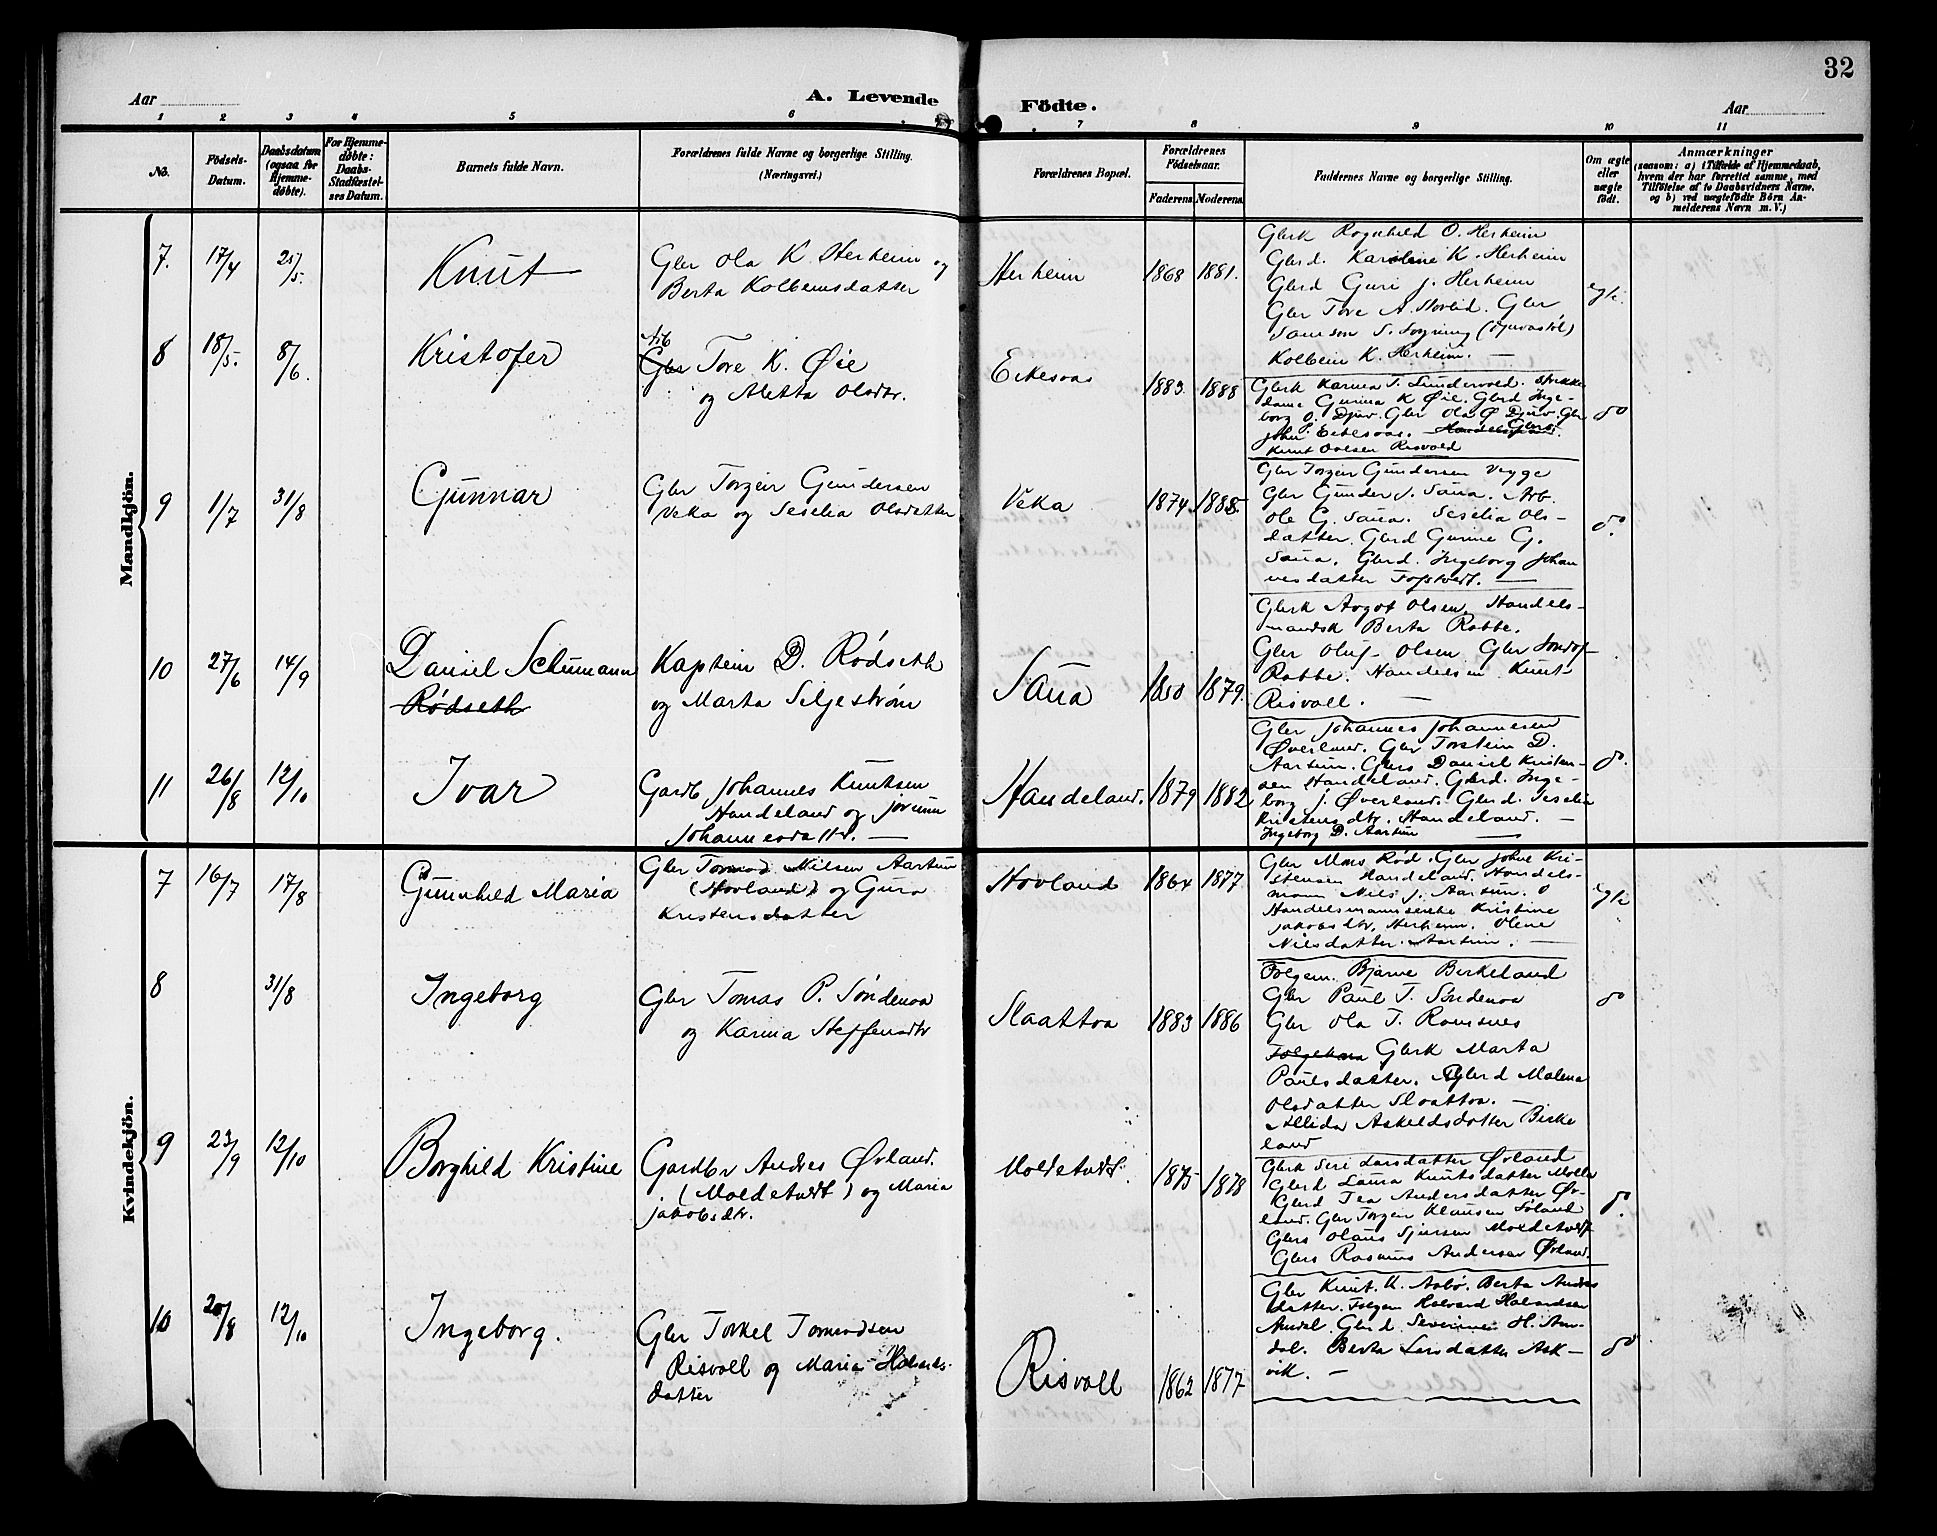 32
Aar
A. Levende Födte.
Aar
1 2 3 4 5 6 7 8 9 10 11
No.
Födsels-
Datum.
Daabsdatum
(ogsaa for
Hjemme-
døbte).
For Hjemme-
døbte:
Daabs-
Stadfæstel-
ses Datum.
Barnets fulde Navn.
Forældrenes fulde Navne og borgerlige Stilling.
(Næringsvei.)
Forældrenes Bopæl.
Forældrenes
Födselsaar.
Faderens
Moderens
Faddernes Navne og borgerlige Stilling.
Om ægte
eller
uægte
født.
Anmærkninger
(saasom: a) i Tilfælde af Hjemmedaab,
hvem der har forrettet samme, med
Tilföielse af to Daabsvidners Navne,
og b) ved uægtefödte Börn An-
melderens Navn m. V.)
Mandkjön.
7. 17/4 25/5. Knut
Gbr Ola K. Herheim og
Berta Kolbeinsdatter
Herheim 1868 1881.
Gbrk Ragnhild O. Herheim
Gbrd. Karoline K. Herheim
Gbrd Guri J. Herheim
Gbr Tore A. Hovlid. Gbr
Samson S.
Kolbein K. Herheim. —
egte.
8 18/5. 8/6. Kristofer
Arb
Gbr Tore K. Øie
og Aletta Olsdtr.
Eikesaas 1883. 1888
Gbrk Karina T. Lundervold.
Gurina K Øie. Gbrd Inge-
borg O. Djuv. Gbr Ola Ø Djuv. Gbr
John Eikesaas. Gbrs
Knut Olsen Risvold
do
9 1/7 31/8 Gunnar
Gbr Torgeir Gundersen
Veka og Seselia Olsdatter
Veka 1874. 1885.
Gbr Torgeir Gundersen Vegge
Gbr Gunder J. Saua. Arb.
Ole G. Saua. Seselia Ols-
datter. Gbrd Gurine G.
Saua. Gbrd. Ingeborg Johan
nesdatter —
do.
10 27/6 14/9 Daniel Schumann
Rødseth
Kaptein D. Rødseth
og Marta Siljestrøm
Saua 1850 1879.
Gbrk Olsen. Handels-
mandsk Berta Rabbe.
Gbr Oluf Olsen Gbr
Rabbe. Handelsm Knut
Risvoll. —
11 26/8 12/10 Ivar
Gardb Johannes Knutsen
Handeland og Jorunn
Johannesdattr. —
Handeland. 1879 1882
Gbr Johannes Johannesen
Øverland. Gbr Torstein D.
Aartun. Gbrs Daniel Kristen-
sen Handeland. Gbrd. Inge-
borg J. Øverland. Gbrd. Seselia
Kristensdtr. Handeland. —
Ingeborg D. Aartun —
do.
Kvindekjön.
7 16/7 17/8 Gunnhild Maria
Gbr Tormod Nilsen Aartun
(Hovland) og Guro
Kristensdatter
Hovland 1864 1877
Gbr Mons Rød. Gbr Johne Kri-
stensen Handeland. Handels-
mann Nils J. Aartun.
Handelsmannsenke Kristine
Jakobsdtr. Herheim. Olene
Nilsdatter. Aartun. —
egte
8 31/8 Ingeborg
Gbr Tomas P. Søndenaa
og Karina Steffensdtr
Slaattaa 1883 1886
Folgem. Bjarne Birkeland
Gbr Paul T. Søndenaa
Gbr Ola T. Ramsnes
Gbrk Marta
Paulsdatter. Gbrd Malena
Olsdatter Slaattaa. —
Allida Askeldsdatter Birke
land
do
9 23/9 12/10 Borghild Kristine
Gardbr Andres Ørland.
(Moldetvedt) og Maria
Jakobsdtr.
Moldetvedt. 1875 1878
Gbrk Seri Larsdatter Ørland
Gbrd Laura Knutsdatter
Gbrd Tea Andersdatter Ør-
land. Gbr Torgeir Klausen Søland
Gbrs Olaus Sjursen Moldetvedt
Gbrs Rasmus Andersen Ørland.
do.
10 20/8 12/10 Ingeborg.
Gbr Torkel Tormodsen
Risvoll og Maria Halvards-
datter
Risvoll 1862 1877
Gbr Knut K. Asbø. Berta Andres
datter. Folgem Halvard Halvardsen
Andal. Gbrd. Severine H. An-
dal. Berta Larsdatter Ask-
vik. —
do